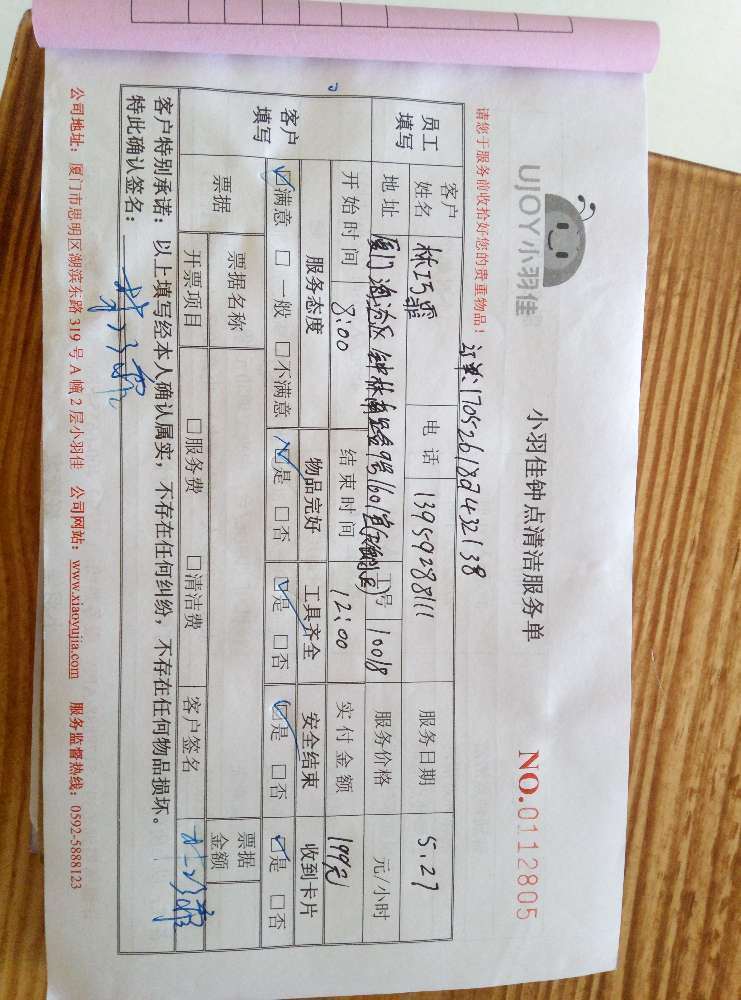 UJOY小羽佳
小羽佳钟点清洁服务单
NO.0112805
请您于服务前收拾好您的贵重物品！
订单:170526187432138
员工填写 客户姓名 林巧霏 电话 13959288111 服务日期 5.27
地址 厦门海沧区钟林南路 9号1601室 工号 10018 服务价格 元/小时
开始时间 8:00 结束时间 12:00 实付金额 199元
客户填写 服务态度 物品完好 工具齐全 安全结束 收到卡片
☑满意 □一般 □不满意 ☑是 □否 ☑是 □否 ☑是 □否 ☑是 □否
票据 票据名称 票据金额
开票项目 □服务费 □清洁费 客户签名
客户特别承诺：以上填写经本人确认属实，不存在任何纠纷，不存在任何物品损坏。
特此确认签名：
公司地址：厦门市思明区湖滨东路 319 号 A 幢 2 层小羽佳 公司网站：www.xiaoyujia.com 服务监督热线：0592-5888123